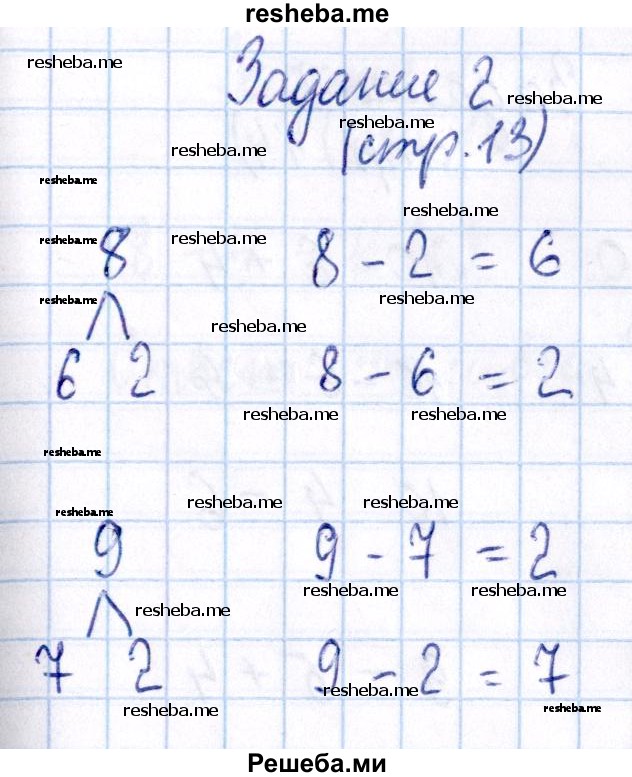 resheba.me
resheba.me
Задание 2
resheba.me
resheba.me
resheba.me
(стр. 13)
resheba.me
resheba.me
resheba.me
resheba.me
8 8 - 2 = 6
resheba.me
resheba.me
resheba.me
6 2 8 - 6 = 2
resheba.me
resheba.me
resheba.me
resheba.me
resheba.me
resheba.me
9 9 - 7 = 2
resheba.me
resheba.me
resheba.me
7 2 9 - 2 = 7
resheba.me
resheba.me
resheba.me
Решеба.ми